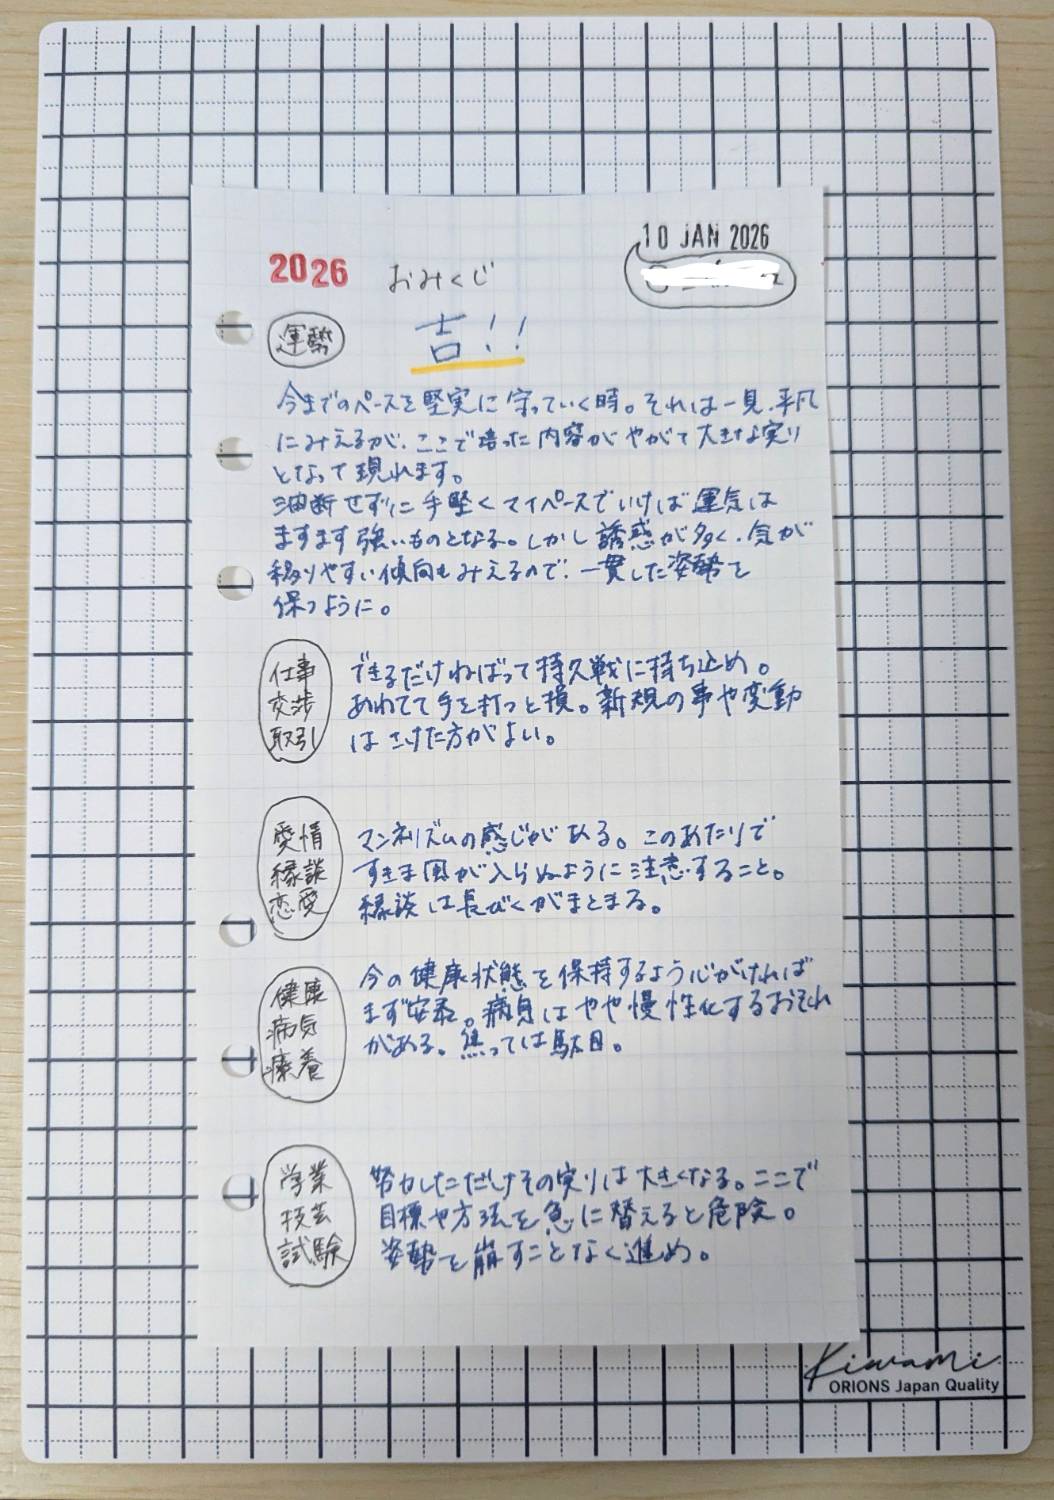 10 JAN 2026
2026 おみくじ
運勢 吉!!
今までのペースを堅実に守っていく時。それは一見、平凡
にみえるが、ここで培った内容がやがて大きな実り
となって現れます。
油断せずに手堅くマイペースでいけば運気は
ますます強いものとなる。しかし誘惑が多く、気が
移りやすい傾向もみえるので、一貫した姿勢を
保つように。
仕事
交渉
取引
できるだけねばって持久戦に持ち込め。
あわてて手を打つと損。新規の事や変動
はさけた方がよい。
愛情
縁談
恋愛
マンネリズムの感じがある。このあたりで
すきま風が入らぬように注意すること。
縁談は長びくがまとまる。
健康
病気
療養
今の健康状態を保持するよう心がければ
まず安泰。病身はやや慢性化するおそれ
がある。焦っては駄目。
学業
技芸
試験
努力しただけその実りは大きくなる。ここで
目標や方法を急に替えると危険。
姿勢を崩すことなく進め。
Kiwami
ORIONS Japan Quality